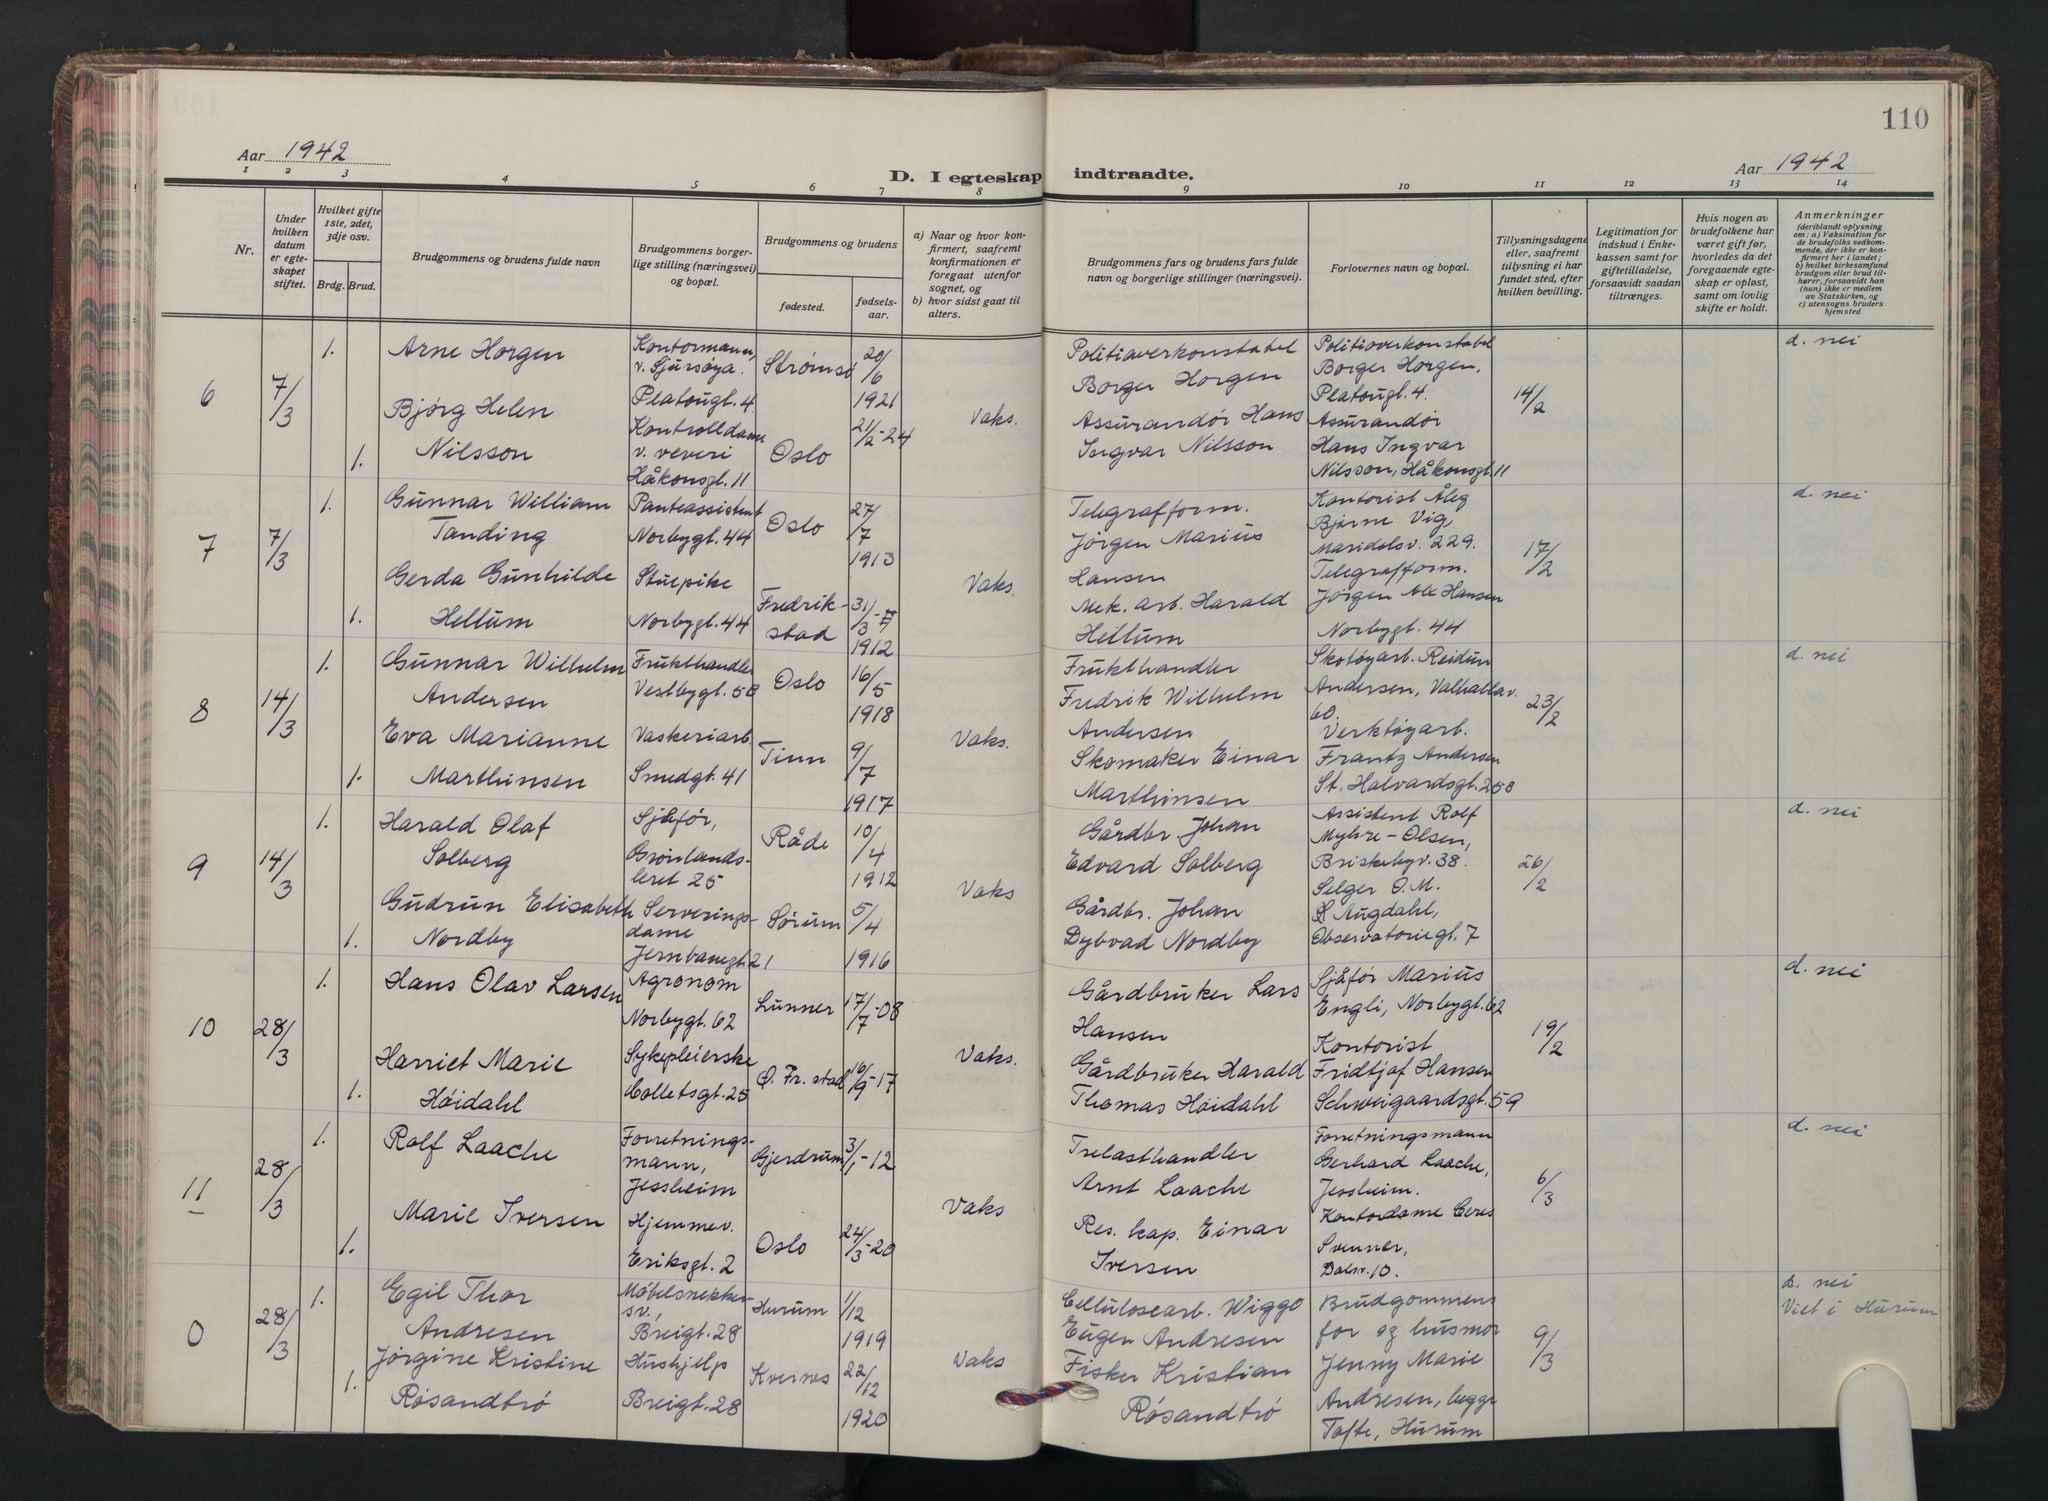 110
Aar 1942
D. I egteskap indtraadte.
Aar 1942
1 2 3 4 5 6 7 8 9 10 11 12 13 14
Nr.
Under hvilken datum er egteskapet stiftet.
Hvilket gifte 1ste, 2det, 3dje osv.
Brdg. Brud.
Brudgommens og brudens fulde navn
Brudgommens borgerlige stilling (næringsvei) og bopæl.
Brudgommens og brudens
fødested.
fødselsaar.
a) Naar og hvor konfirmert, saafremt konfirmationen er foregaat utenfor sognet, og
b) hvor sidst gaat til alters.
Brudgommens fars og brudens fars fulde navn og borgerlige stillinger (næringsvei).
Forlovernes navn og bopæl.
Tillysningsdagene eller, saafremt tillysning ei har fundet sted, efter hvilken bevilling.
Legitimation for indskud i Enkekassen samt for giftetilladelse, forsaavidt saadan tiltrænges.
Hvis nogen av brudefolkene har været gift før, hvorledes da det foregaaende egteskap er opløst, samt om lovlig skifte er holdt.
Anmerkninger (deriblandt oplysning om: a) Vaksination for de brudefolks vedkommende, der ikke er konfirmert her i landet; b) hvilket kirkesamfund brudgom eller brud tilhører, forsaavidt han (hun) ikke er medlem av Statskirken, og c) utensogns bruders hjemsted
6
7/3
1.
Arne Horgen
Kontormann
v. Sjursøya.
Platougt. 4
Strømsø
20/6
1921
Bjørg Helen
Nilsson
1.
Kontrolldame
v. veveri
Håkonsgt. 11
Oslo
21/2-24
Vaks.
Politioverkonstabel
Borger Horgen
Assurandør Hans
Ingvar Nilsson
Politioverkonstabel
Borger Horgen,
Platougt. 4.
Assurandør
Hans Ingvar
Nilsson, Håkonsgt. 11
14/2
d. nei
7
7/3
1.
Gunnar William
Tanding
Panteassistent
Norbygt. 44
Oslo
27/7
1913
Gerda Gunhilde
Hellum
1.
Stuepike
Norbygt. 44
Fredrik-
stad
31/3
1912
Vaks.
Telegrafform.
Jørgen Marius
Hansen
Mek. arb. Harald
Hellum
Kontorist
Bjarne Vig,
Maridalsv. 229.
Telegrafform.
Jørgen Hansen
Norbygt. 44
17/2
d. nei
8
14/3
1.
Gunnar Wilhelm
Andersen
Frukthandler
Vestbygt. 58
Oslo
16/5
1918
Eva Marianne
Marthinsen
1.
Vaskeriarb.
Smedgt. 41
Tinn
9/7
1917
Vaks.
Frukthandler
Fredrik Wilhelm
Andersen
Skomaker Einar
Marthinsen
Skotøyarb. Reidun
Andersen, Valhallav.
60.
Verktøyarb.
Frantz Andersen
St. Halvardsgt.
23/2
d. nei
9
14/3
1.
Harald Olaf
Solberg
Sjåfør,
Grønlands-
leret 25
Råde
10/4
1912
Gudrun Elisabeth
Nordby
1.
Serverings-
dame
Jernbanegt. 21
Sørum
5/4
1916
Vaks
Gårdbr. Johan
Edvard Solberg
Gårdbr. Johan
Dybvad Nordby
Assistent Rolf
Myhre-Olsen,
Briskebyv. 38.
Selger O.M.
Augdahl,
Observatoriegt. 7
26/2
d. nei
10
28/3
1.
Hans Olav Larsen
Agronom
Norbygt. 62
Lunner
17/7-08
Harriet Marie
Høidahl
1.
Sykepleierske
Colletsgt. 25
Ø. Fr. stad
16/9-17
Vaks.
Gårdbruker Lars
Hansen
Gårdbruker Harald
Thomas Høidahl
Sjåfør Marius
Engli, Norbygt. 62
Kontorist
Fridtjof Hansen
Schweigaardsgt. 59
19/2
d. nei
11
28/3
1.
Rolf Laache
Forretnings-
mann,
Jessheim
Gjerdrum
3/1-12
Marie Iversen
1.
Hjemmev.
Eriksgt. 2
Oslo
24/3-20
Vaks
Trelasthandler
Arnt Laache
Res. kap. Einar
Iversen
Forretningsmann
Gerhard Laache,
Jessheim.
Kontordame Ceres
Svenner,
Dalsv. 10.
6/3
d. nei
0
28/3
1.
Egil Thor
Andresen
Møbelsnekker
sv.,
Breigt. 28
Hurum
1/12
1919
Jørgine Kristine
Røsandtrø
1.
Hushjelp
Breigt. 28
Kvernes
22/12
1920
Vaks
Cellulosearb. Wiggo
Eugen Andresen
Fisker Kristian
Røsandtrø
Brudgommens
far og husmor
Jenny Marie
Andresen, begge
Tofte, Hurum
9/3
d. nei
Viet i Hurum